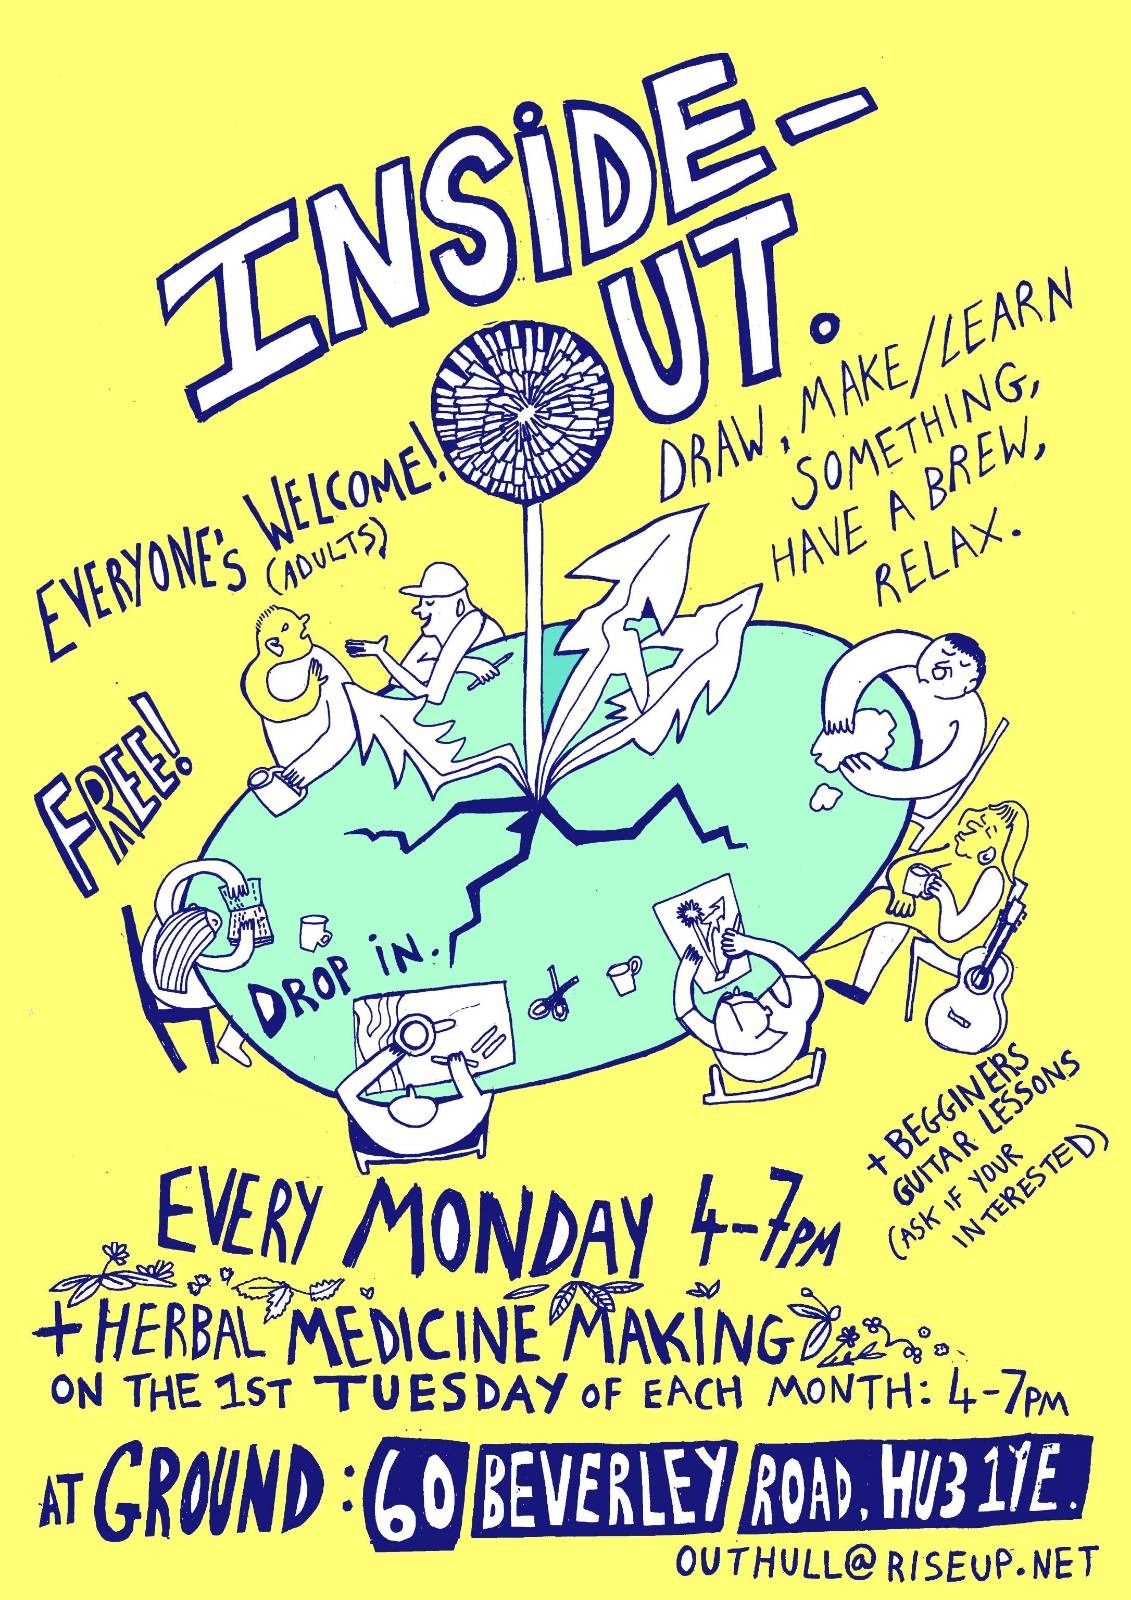 INSIDE-
OUT.
DRAW, MAKE/LEARN
SOMETHING,
HAVE A BREW,
RELAX.
EVERYONE'S WELCOME!
(ADULTS)
FREE!
DROP IN.
+ BEGGINERS
GUITAR LESSONS
(ASK IF YOUR
INTERESTED)
EVERY MONDAY 4-7PM
+ HERBAL MEDICINE MAKING
ON THE 1ST TUESDAY OF EACH MONTH: 4-7PM
AT GROUND: 60 BEVERLEY ROAD, HU3 1YE.
OUTHULL@RISEUP.NET